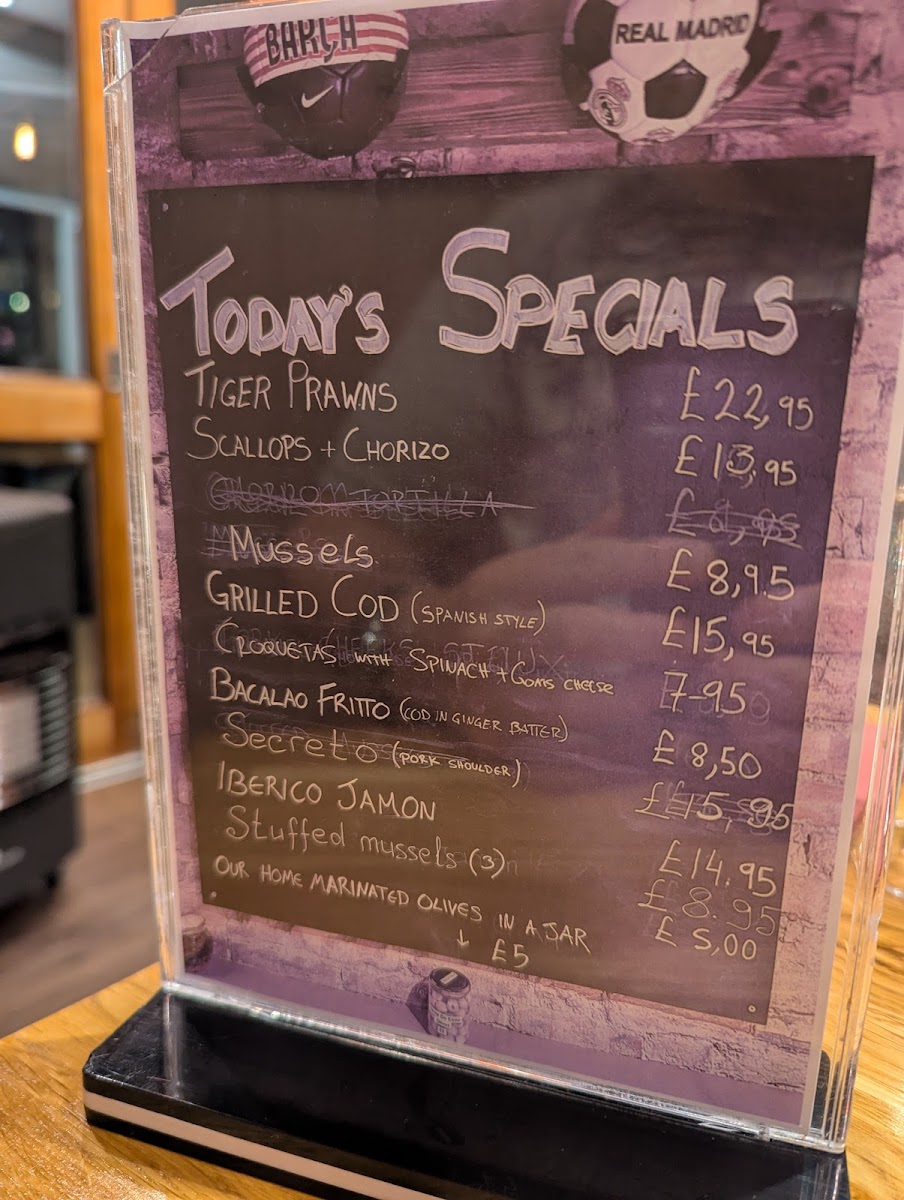 BARÇA
REAL MADRID
TODAY'S SPECIALS
TIGER PRAWNS £22,95
SCALLOPS + CHORIZO £13,95
TORTILLA
MUSSELS £8,95
GRILLED COD (SPANISH STYLE) £15,95
CROQUETAS WITH SPINACH + GOATS CHEESE 7-95
BACALAO FRITTO (COD IN GINGER BATTER) £8,50
Secreto (PORK SHOULDER) £15,95
IBERICO JAMON £14.95
Stuffed mussels (3) £8.95
OUR HOME MARINATED OLIVES IN A JAR £5,00
↓ £5